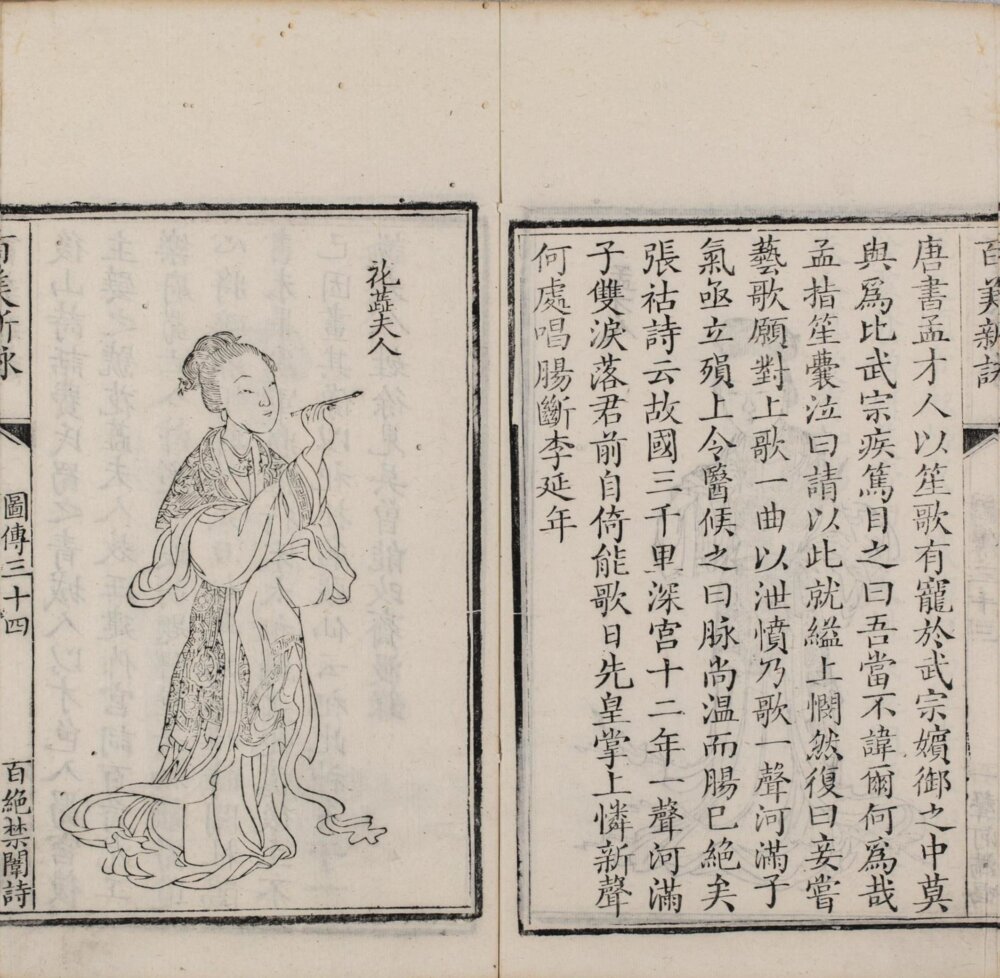 百美新詠
唐書孟才人以笙歌有寵於武宗嬪御之中莫
與爲比武宗疾篤目之曰吾當不諱爾何爲哉
孟指笙囊泣曰請以此就縊上憫然復曰妾嘗
藝歌願對上歌一曲以泄憤乃歌一聲河滿子
氣亟立殞上令醫候之曰脉尚温而腸巳絶矣
張祜詩云故國三千里深宮十二年一聲河滿
子雙淚落君前自倚能歌日先皇掌上憐新聲
何處唱腸斷李延年
花蕊夫人
百美新詠
圖傳三十四
百絶禁闈詩